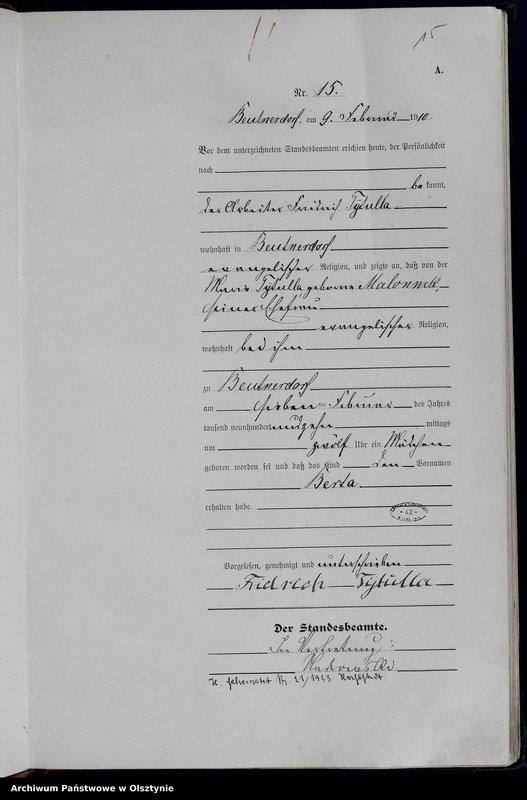 15
A.
Nr. 15.
Beutnerdorf, am 9. Februar 1910.
Vor dem unterzeichneten Standesbeamten erschien heute, der Persönlichkeit
nach
bekannt,
der Arbeiter Friedrich Tybulla
wohnhaft in Beutnerdorf
evangelischer Religion, und zeigte an, daß von der
Marie Tybulla geborene
seiner Ehefrau
evangelischer Religion,
wohnhaft bei ihm
zu Beutnerdorf
am sieben ten Februar des Jahres
tausend neunhundert und zehn mittags
um zwölf Uhr ein Mädchen
geboren worden sei und daß das Kind den Vornamen
Berta
erhalten habe.
42
Vorgelesen, genehmigt und unterschrieben
Fridrich Tybulla
Der Standesbeamte.
In Vertretung:
geheiratet Nr. 21/1933
Archiwum Państwowe w Olsztynie